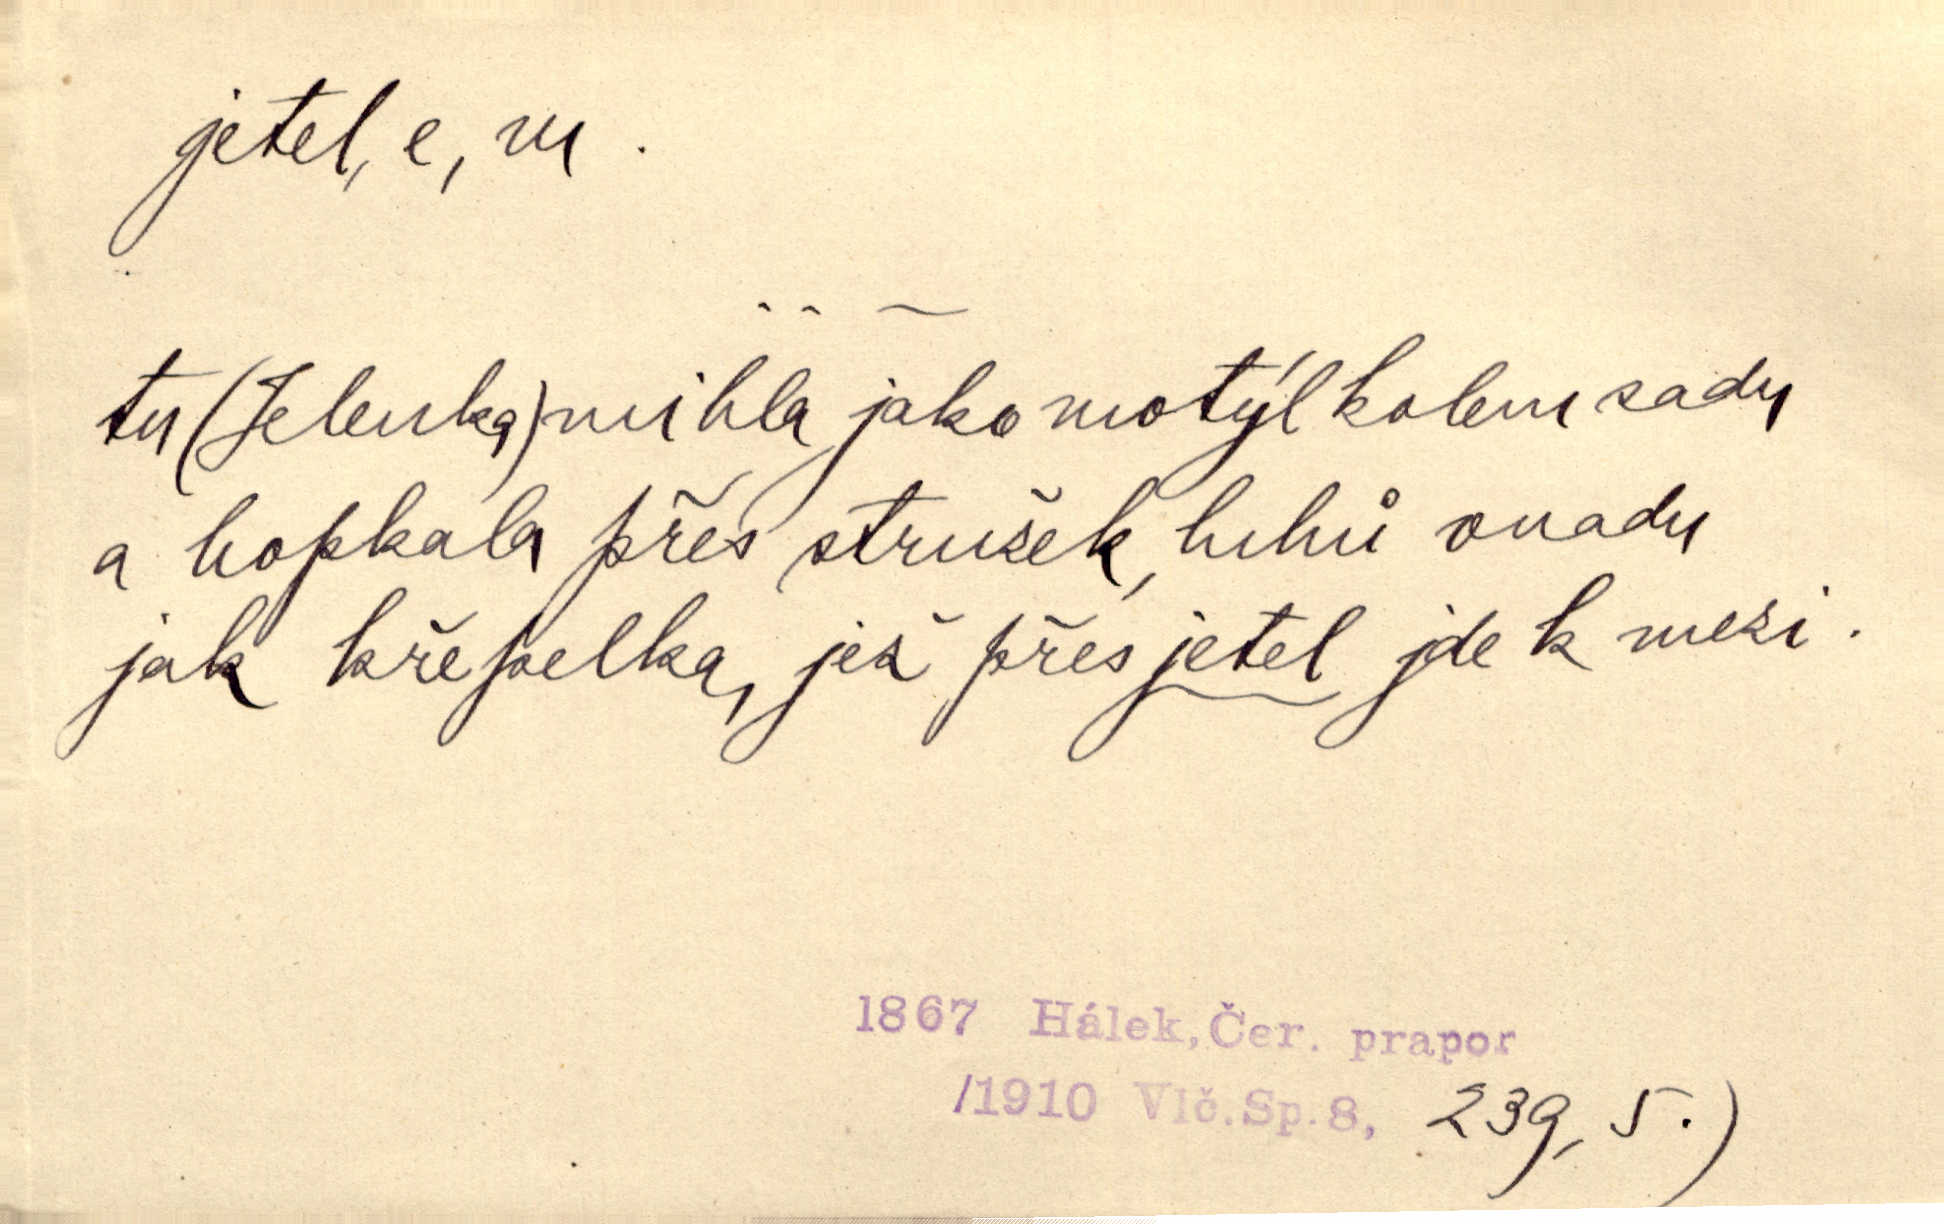 jetel, e, m.
tu (Jelenka) mihla jako motýl kolem sadu
a hopkala přes stružek, luhů vnadu
jak křepelka, jež přes jetel jde k mezi.
1867 Hálek, Čer. prapor
/1910 Vlč.Sp.8, 239, 5.)